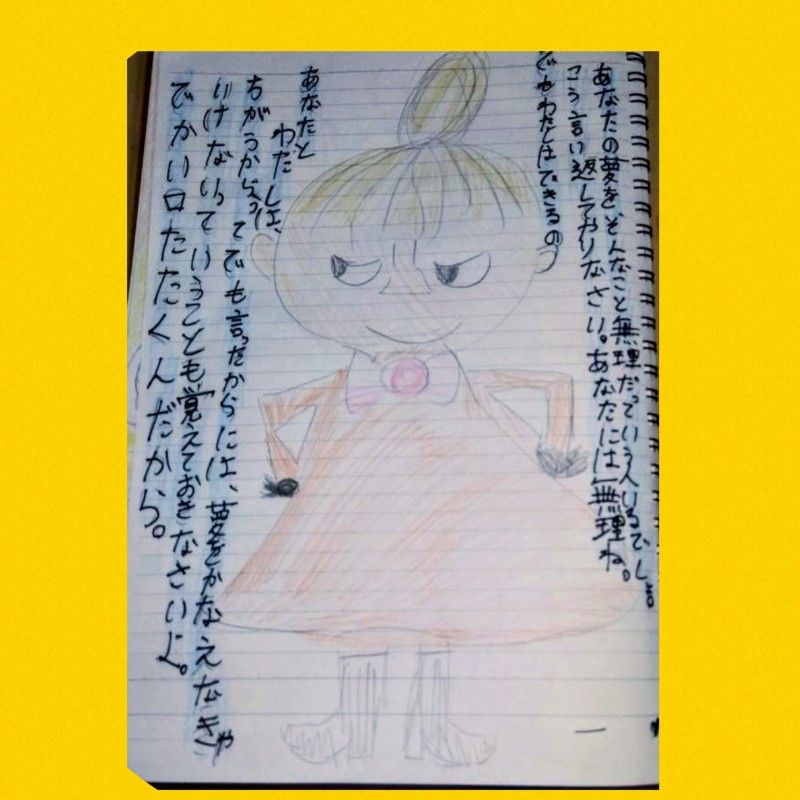 あなたの夢をそんなこと無理だっていう人いるでしょ。
こう言い返してやりなさい。あなたには無理ね。
でもわたしはできるの
あなたと
わたしは、
ちがうからって でも言ったからには、夢をかなえなきゃ
いけないっていうことも覚えておきなさいよ。
でかい口たたくんだから。